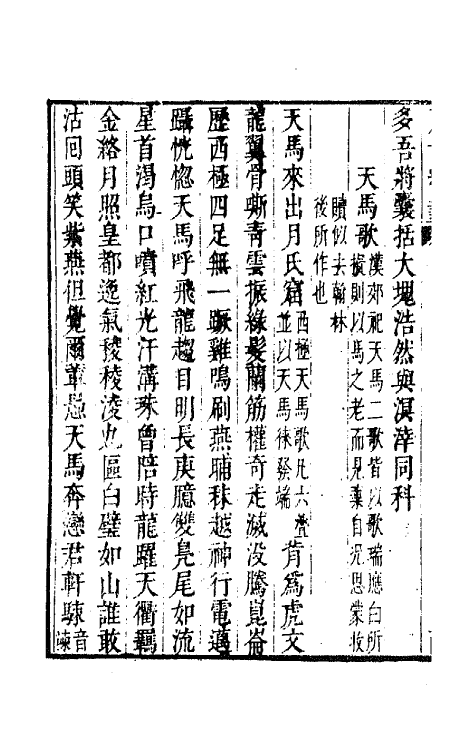 多吾將囊括大塊浩然與溟涬同科
天馬歌
漢郊祀天馬二歌皆以歌瑞應白所
擬則以馬之老而見棄自況思蒙收
贖似去翰林
後所作也
天馬來出月氏窟
西極天馬歌凡六疊
並以天馬徠發端
背為虎文
龍翼骨嘶青雲振綠髮蘭筋權奇走滅没騰崑崙
歷西極四足無一蹶雞鳴刷燕晡秣越神行電邁
躡恍惚天馬呼飛龍趨目明長庚臆雙鳧尾如流
星首渴烏口噴紅光汗溝珠曾陪時龍躍天衢羈
金絡月照皇都逸氣稜稜淩九區白璧如山誰敢
沽回頭笑紫燕但覺爾輩愚天馬奔戀君軒駷
音